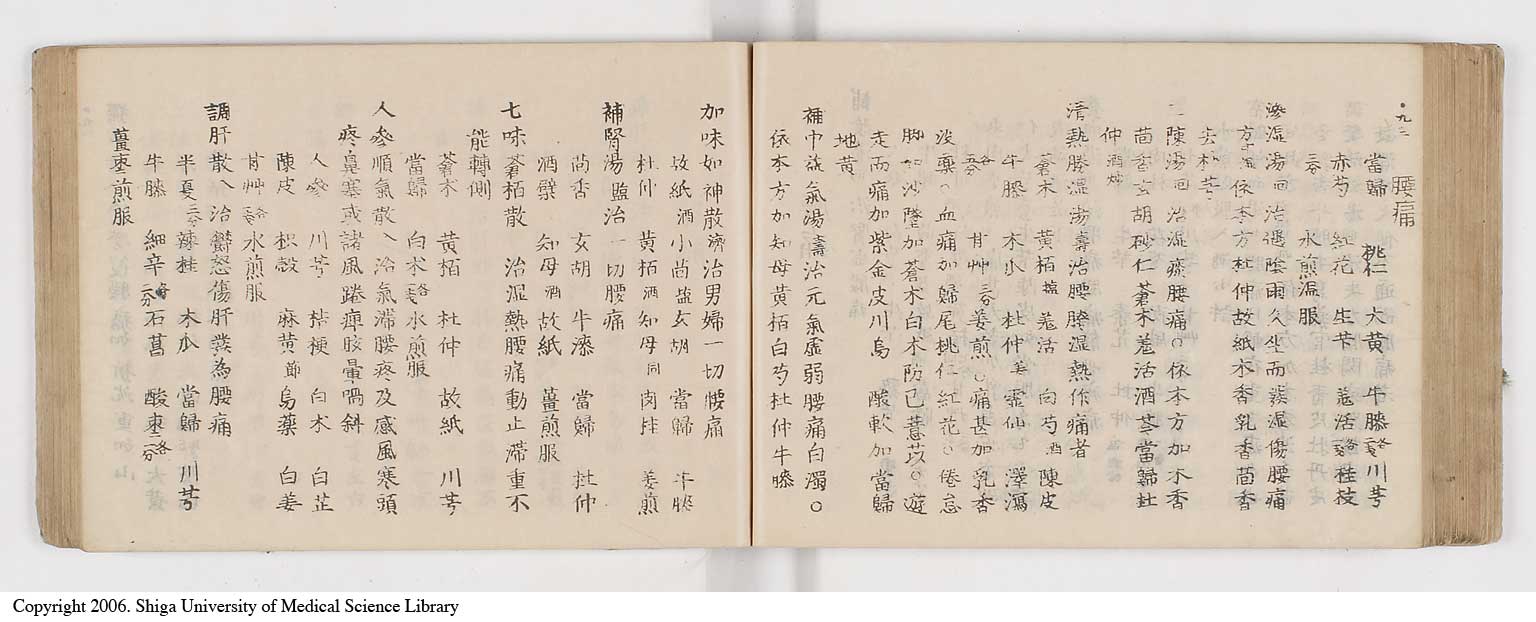 九二
腰痛
當歸 桃仁 大黄 牛膝各一戔 川芎
赤芍 紅花 生芐 羗活各五戔 桂枝
三分 水煎温服
滲湿湯回 治遇陰雨久坐而發湿傷腰痛
方 依本方 杜仲故紙木香乳香茴香
去 芐
二陳湯回 治湿痰腰痛○依本方加木香
茴香玄胡砂仁蒼术羗活酒芩當歸杜
仲酒炒
清熱勝湿湯壽治腰胯湿熱作痛者
蒼术 黄栢塩 羗活 白芍酒 陳皮
牛膝 木瓜 杜仲姜 霊仙 澤瀉
各五分 甘艸三分 姜煎○痛甚加乳香
没薬○血痛加歸尾桃仁紅花○倦怠
脚如沙墜加蒼木白术防己薏苡○遊
走而痛加紫金皮川烏 酸軟加當歸
地黄
補中益氣湯壽治元氣虚弱腰痛白濁○
依本方加知母黄栢白芍杜仲牛膝
加味如神散濟治男婦一切腰痛
故紙酒 小茴塩 玄胡 當歸 牛膝
杜仲 黄栢酒 知母同 肉桂 姜煎
補腎湯監治一切腰痛
茴香 玄胡 牛漆 當歸 杜仲
酒檗 知母酒 故紙 薑煎服
七味蒼栢散 治湿熱腰痛動止滞重不
能轉側
蒼木 黄栢 杜仲 故紙 川芎
當歸 白术各一戔 水煎服
人參順氣散入 治氣滞腰疼及感風寒頭
疼鼻塞或諸風踡痺眩暈喎斜
人參 川芎 桔梗 白术 白芷
陳皮 枳殻 麻黄節 烏藥 白姜
甘艸各一戔 水煎服
調肝散入 治欝怒傷肝發為腰痛
半夏三分 辣桂 木瓜 當歸 川芎
牛膝 細辛各二分 石菖 酸棗各二分
薑棗煎服
Copyright 2006. Shiga University of Medical Science Library